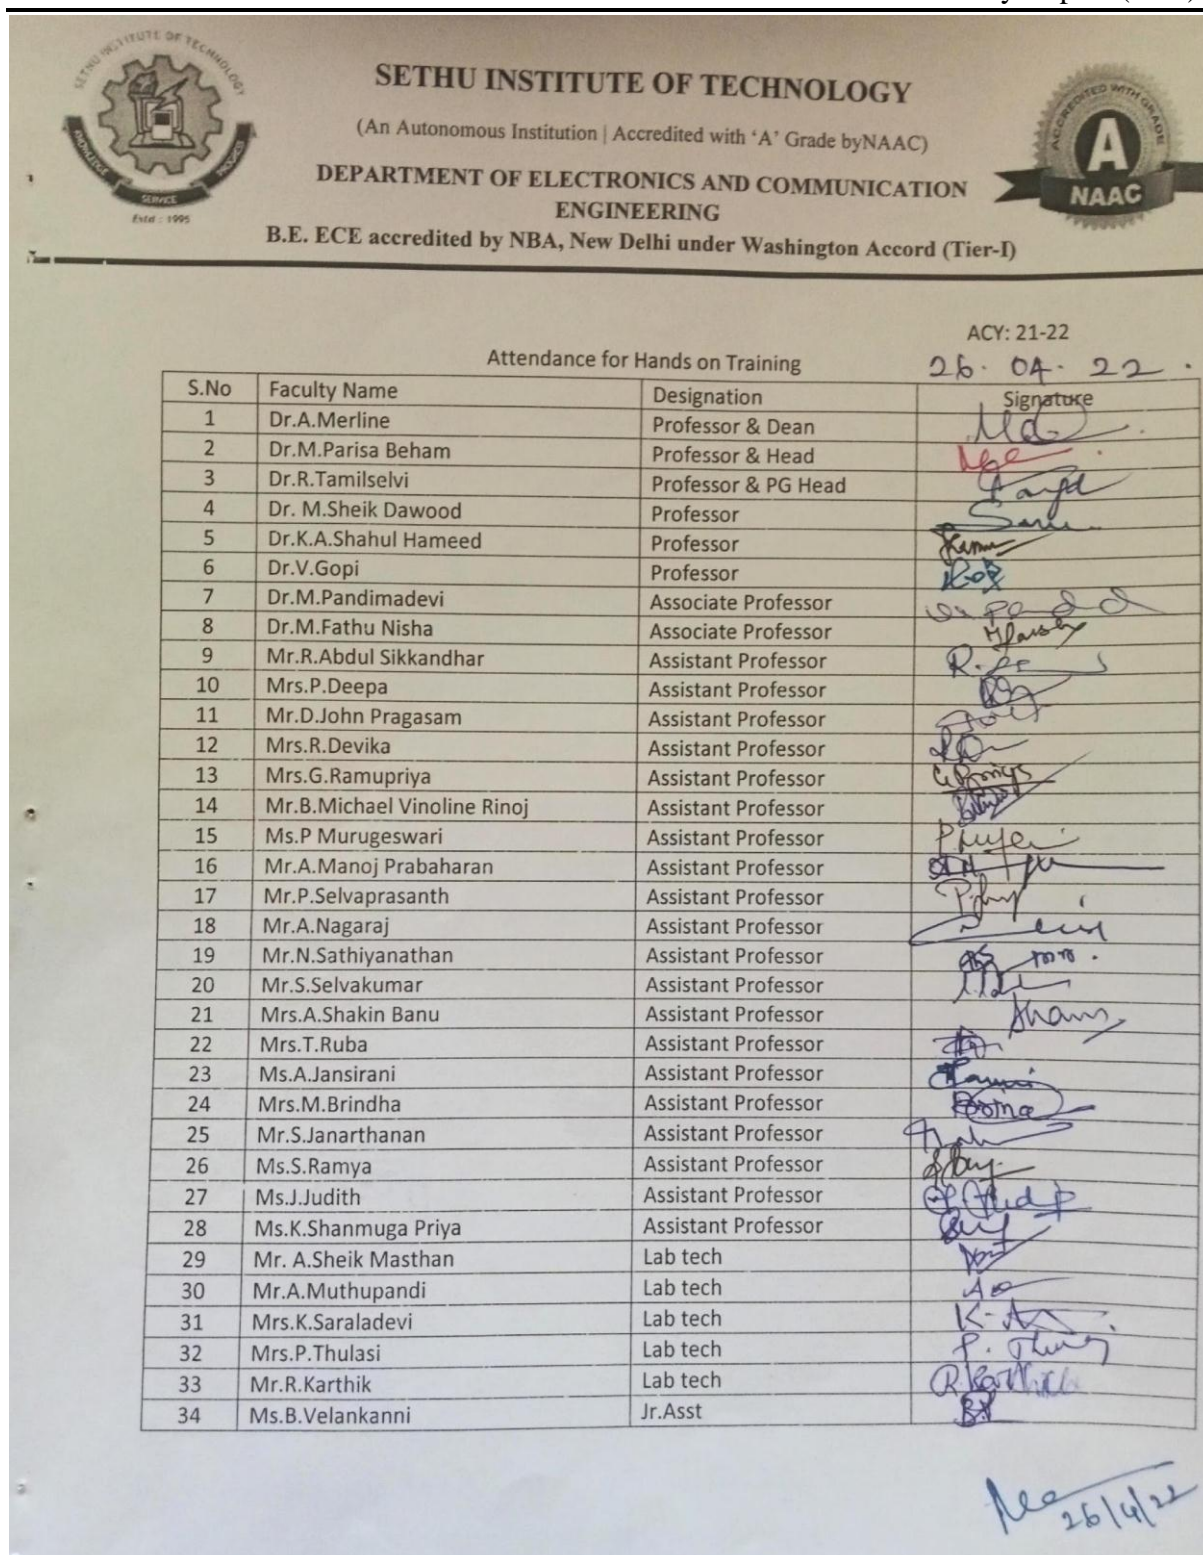 SETHU INSTITUTE OF TECHNOLOGY
SETHU INSTITUTE OF TECHNOLOGY
(An Autonomous Institution | Accredited with ‘A’ Grade byNAAC)
DEPARTMENT OF ELECTRONICS AND COMMUNICATION
ENGINEERING
B.E. ECE accredited by NBA, New Delhi under Washington Accord (Tier-I)
KNOWLEDGE
SERVICE
Estd : 1995
ACCREDITED WITH GRADE
A
NAAC
ACY: 21-22
Attendance for Hands on Training
26. 04. 22.
S.No Faculty Name Designation Signature
1 Dr.A.Merline Professor & Dean
2 Dr.M.Parisa Beham Professor & Head
3 Dr.R.Tamilselvi Professor & PG Head
4 Dr. M.Sheik Dawood Professor
5 Dr.K.A.Shahul Hameed Professor
6 Dr.V.Gopi Professor
7 Dr.M.Pandimadevi Associate Professor
8 Dr.M.Fathu Nisha Associate Professor
9 Mr.R.Abdul Sikkandhar Assistant Professor
10 Mrs.P.Deepa Assistant Professor
11 Mr.D.John Pragasam Assistant Professor
12 Mrs.R.Devika Assistant Professor
13 Mrs.G.Ramupriya Assistant Professor
14 Mr.B.Michael Vinoline Rinoj Assistant Professor
15 Ms.P Murugeswari Assistant Professor
16 Mr.A.Manoj Prabaharan Assistant Professor
17 Mr.P.Selvaprasanth Assistant Professor
18 Mr.A.Nagaraj Assistant Professor
19 Mr.N.Sathiyanathan Assistant Professor
20 Mr.S.Selvakumar Assistant Professor
21 Mrs.A.Shakin Banu Assistant Professor
22 Mrs.T.Ruba Assistant Professor
23 Ms.A.Jansirani Assistant Professor
24 Mrs.M.Brindha Assistant Professor
25 Mr.S.Janarthanan Assistant Professor
26 Ms.S.Ramya Assistant Professor
27 Ms.J.Judith Assistant Professor
28 Ms.K.Shanmuga Priya Assistant Professor
29 Mr. A.Sheik Masthan Lab tech
30 Mr.A.Muthupandi Lab tech
31 Mrs.K.Saraladevi Lab tech
32 Mrs.P.Thulasi Lab tech
33 Mr.R.Karthik Lab tech R.Karthick
34 Ms.B.Velankanni Jr.Asst
26/4/22